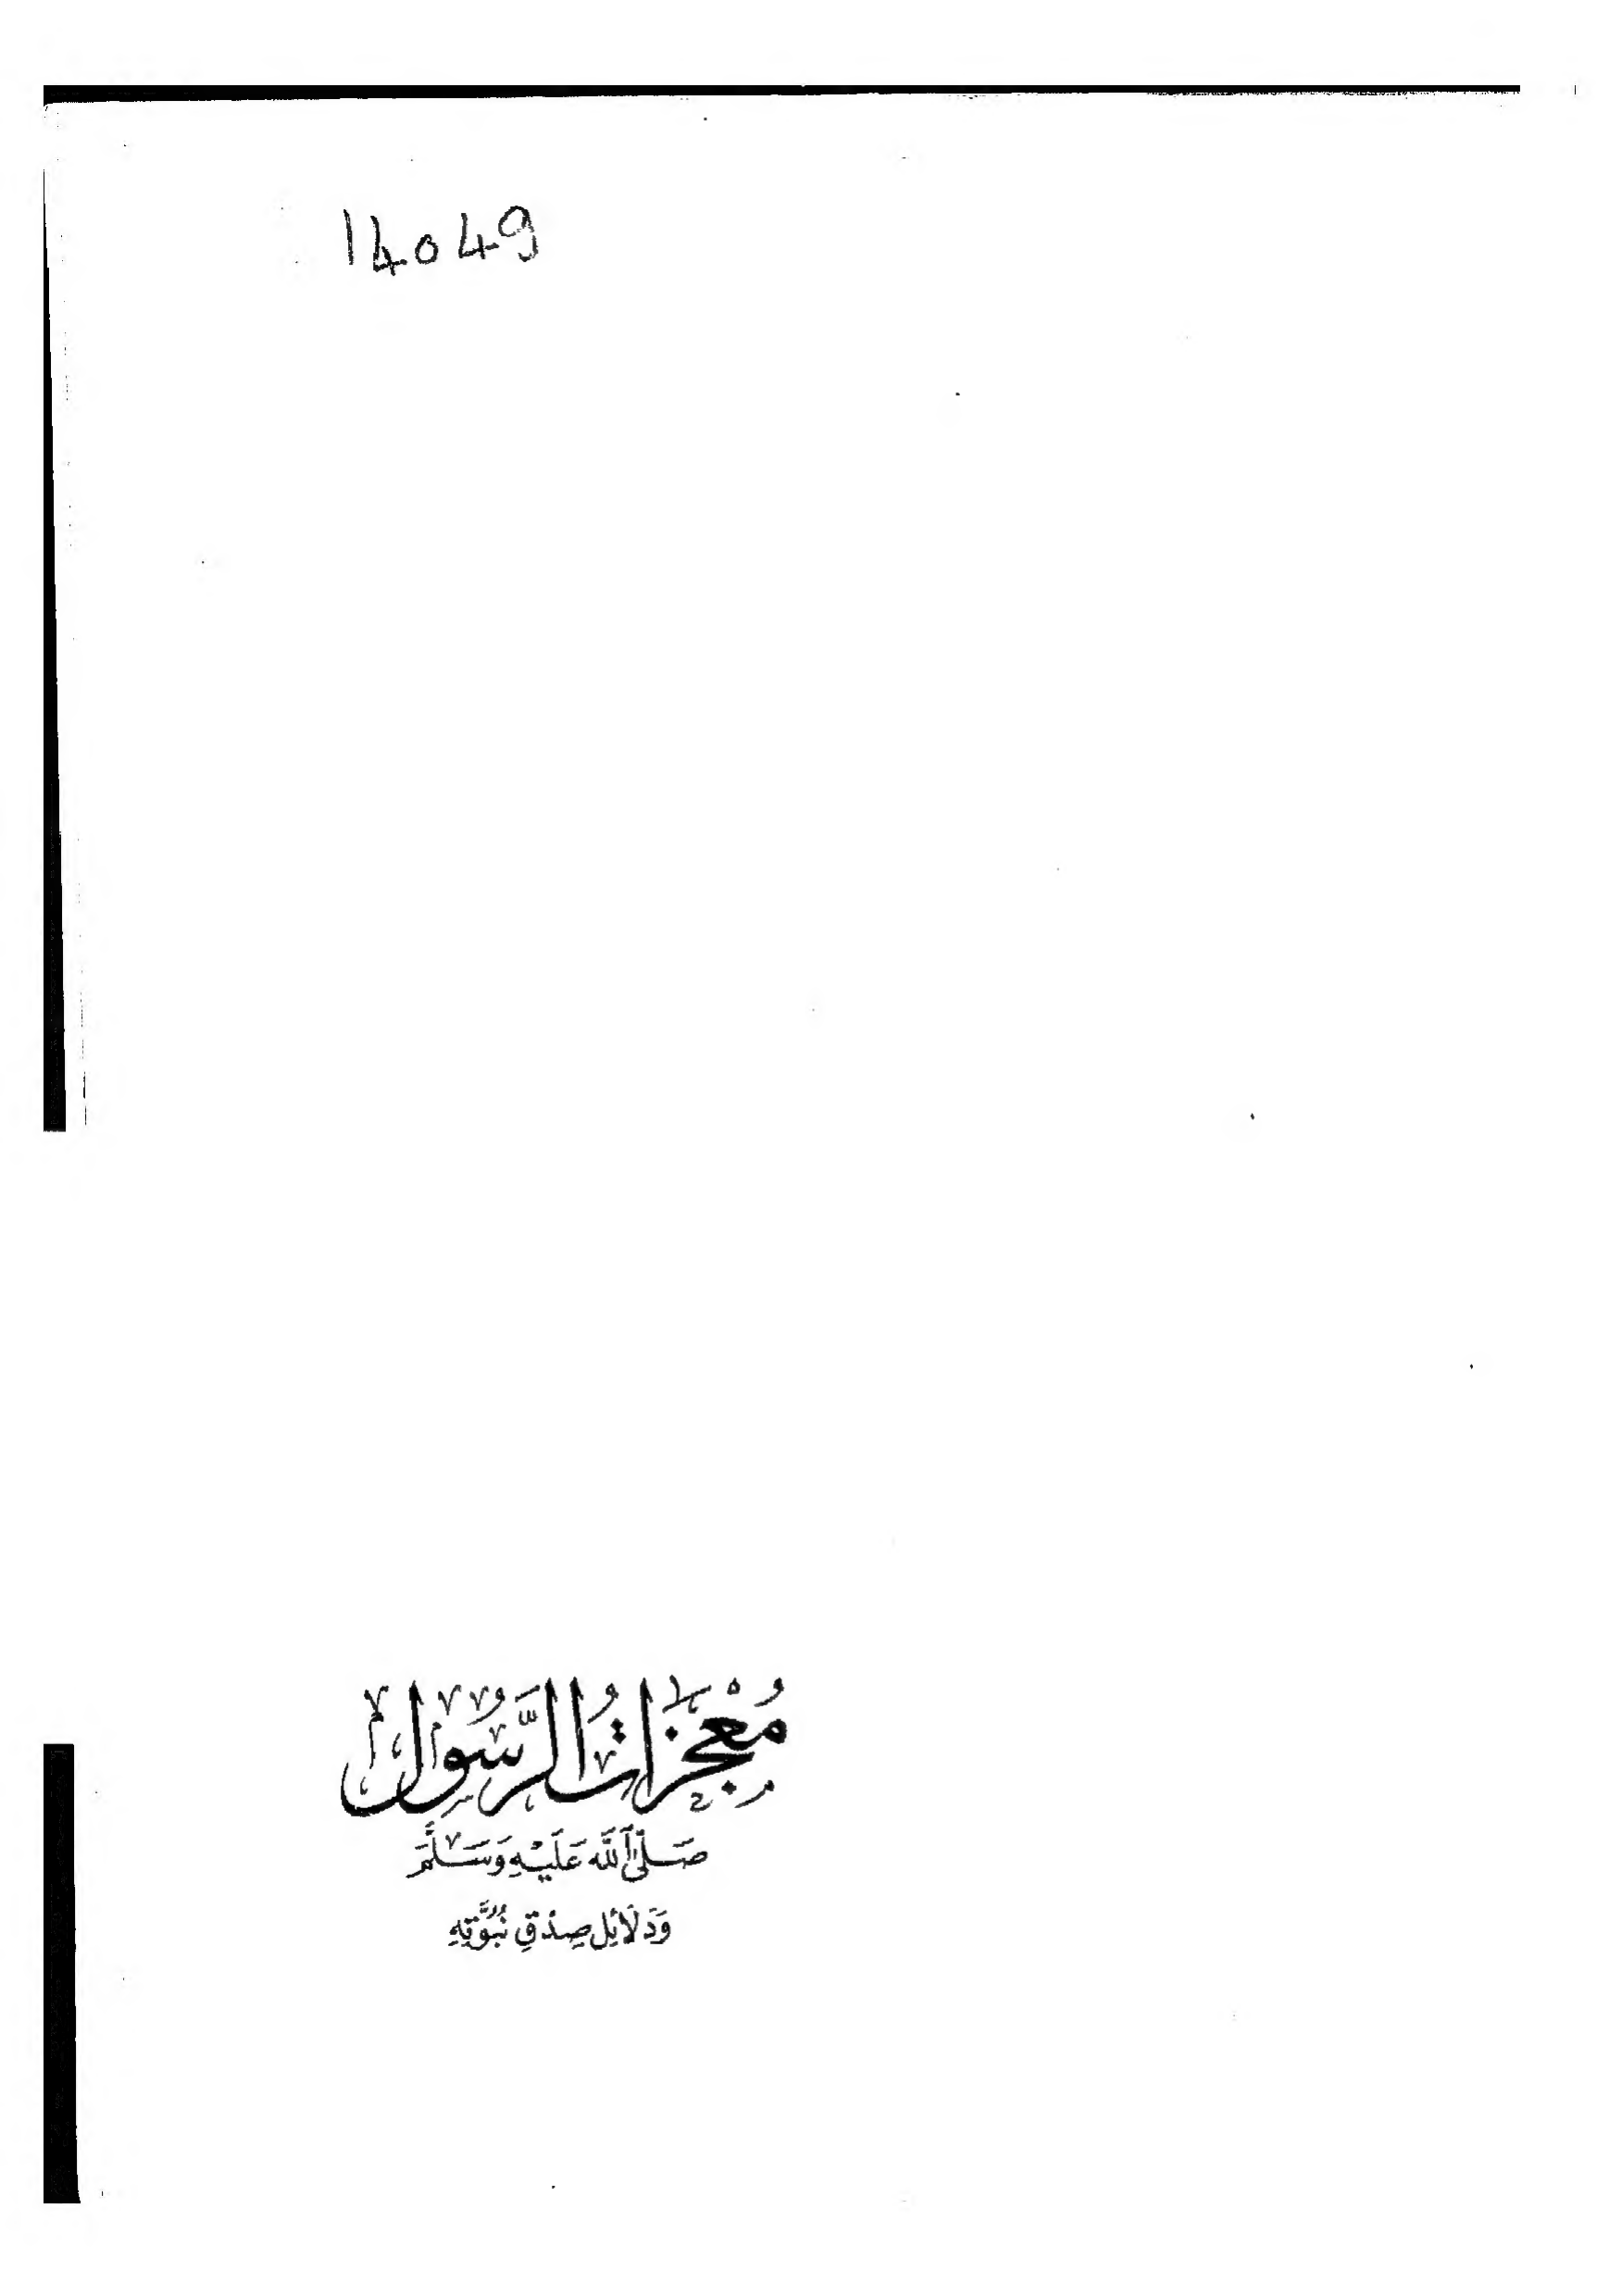 14049
مُعْجِزَاتُ الرَّسُولِ
صَلَّى اللَّهُ عَلَيْهِ وَسَلَّمَ
وَدَلَائِلِ صِدْقِ نُبُوَّتِهِ